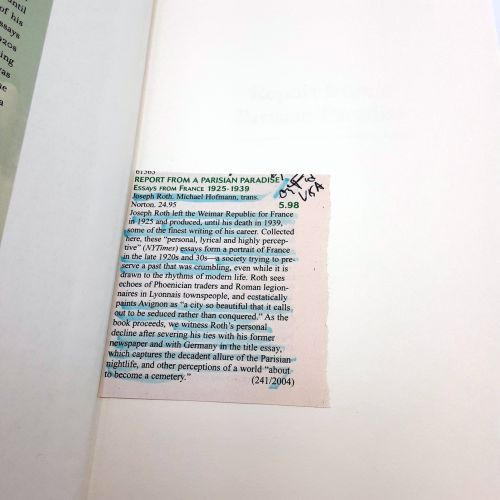 until
of his
essays
1920s
ing
was
ne
a
61563
REPORT FROM A PARISIAN PARADISE
ESSAYS FROM FRANCE 1925-1939
Joseph Roth. Michael Hofmann, trans.
Norton. 24.95
5.98
USA
Joseph Roth left the Weimar Republic for France
in 1925 and produced, until his death in 1939,
some of the finest writing of his career. Collected
here, these “personal, lyrical and highly percep-
tive” (NYTimes) essays form a portrait of France
in the late 1920s and 30s—a society trying to pre-
serve a past that was crumbling, even while it is
drawn to the rhythms of modern life. Roth sees
echoes of Phoenician traders and Roman legion-
naires in Lyonnais townspeople, and ecstatically
paints Avignon as “a city so beautiful that it calls
out to be seduced rather than conquered.” As the
book proceeds, we witness Roth's personal
decline after severing his ties with his former
newspaper and with Germany in the title essay,
which captures the decadent allure of the Parisian
nightlife, and other perceptions of a world “about
to become a cemetery.” (241/2004)